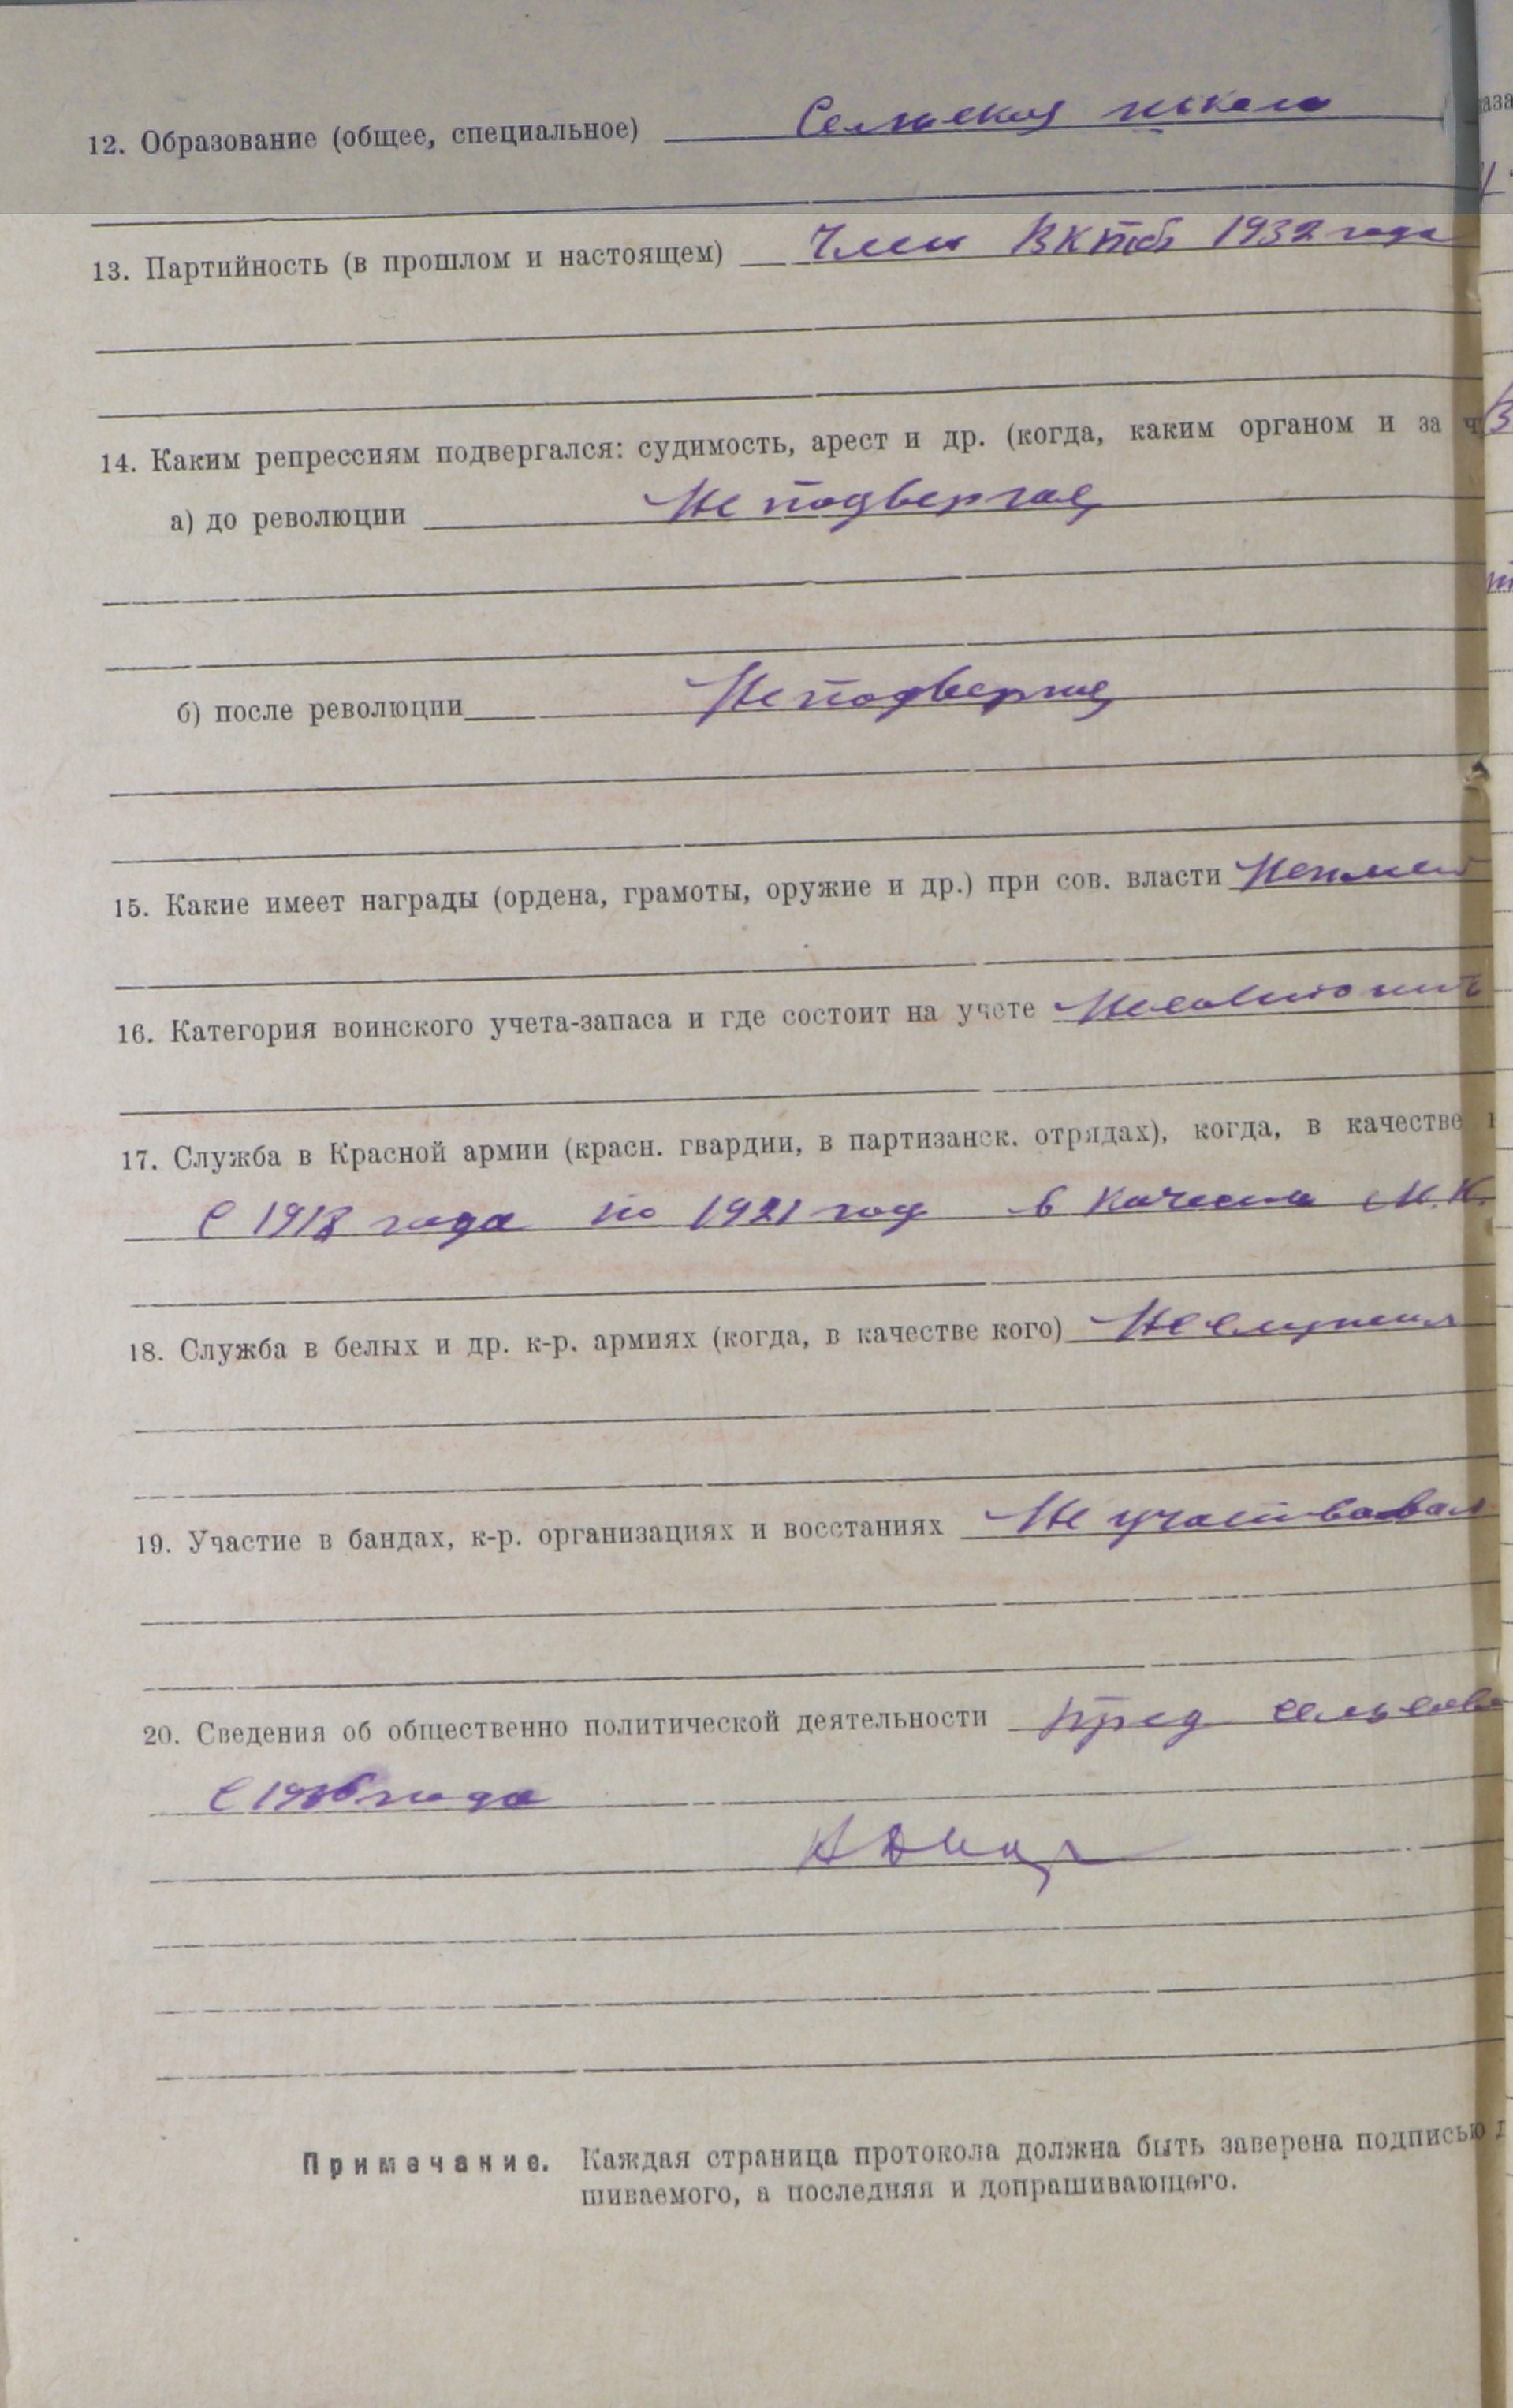 12. Образование (общее, специальное) Сельская школа
13. Партийность (в прошлом и настоящем) Член ВКПб 1932 года
14. Каким репрессиям подвергался: судимость, арест и др. (когда, каким органом и за ч
а) до революции Не подвергался
б) после революции Не подвергался
15. Какие имеет награды (ордена, грамоты, оружие и др.) при сов. власти Не имеет
16. Категория воинского учета-запаса и где состоит на учете
17. Служба в Красной армии (красн. гвардии, в партизанск. отрядах), когда, в качестве к
С 1918 года по 1921 год в качестве М. К.
18. Служба в белых и др. к-р. армиях (когда, в качестве кого) Не служил
19. Участие в бандах, к-р. организациях и восстаниях Не участвовал
20. Сведения об общественно политической деятельности пред сельсове
С 1936 года
Примечание. Каждая страница протокола должна быть заверена подписью д
шиваемого, а последняя и допрашивающего.